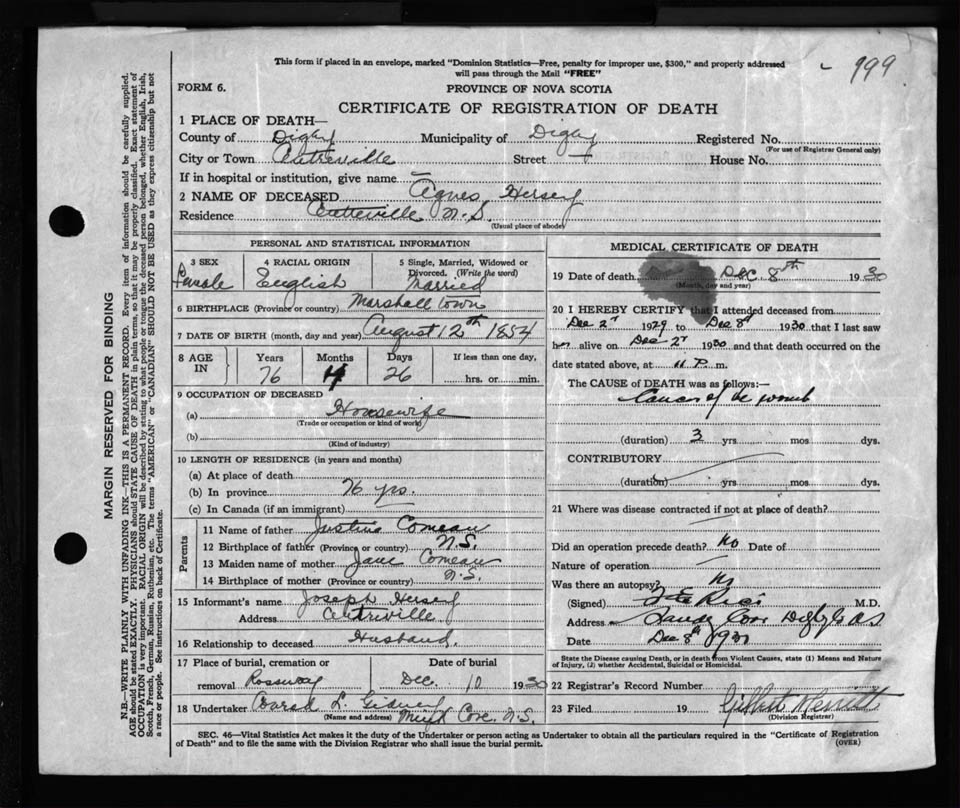 This form if placed in an envelope, marked "Dominion Statistics—Free, penalty for improper use, $300," and properly addressed
will pass through the Mail "FREE"
- 199
FORM 6.
PROVINCE OF NOVA SCOTIA
CERTIFICATE OF REGISTRATION OF DEATH
MARGIN RESERVED FOR BINDING
N.B.—WRITE PLAINLY WITH UNFADING INK—THIS IS A PERMANENT RECORD. Every item of information should be carefully supplied.
AGE should be stated EXACTLY. PHYSICIANS should STATE CAUSE OF DEATH in plain terms, so that it may be properly classified. Exact statement of
OCCUPATION is very important. RACIAL ORIGIN will be described by stating to what people or tongue the deceased person belonged, whether English, Irish,
Scotch, French, German, Russian, Ruthenian, etc. The terms "AMERICAN" or "CANADIAN" SHOULD NOT BE USED as they express citizenship but not
a race or people. See instructions on back of Certificate.
1 PLACE OF DEATH—
County of Digby Municipality of Digby Registered No.
(For use of Registrar General only)
City or Town Centreville Street House No.
If in hospital or institution, give name —
2 NAME OF DECEASED Agnes Hersey
Residence Centreville N.S.
(Usual place of abode)
PERSONAL AND STATISTICAL INFORMATION
3 SEX Female
4 RACIAL ORIGIN English
5 Single, Married, Widowed or Divorced. (Write the word) Married
6 BIRTHPLACE (Province or country) Marshalltown
7 DATE OF BIRTH (month, day and year) August 12th 1854
8 AGE IN Years 76 Months 4 Days 26 If less than one day, hrs. or min.
9 OCCUPATION OF DECEASED
(a) Housewife
(Trade or occupation or kind of work)
(b)
(Kind of industry)
10 LENGTH OF RESIDENCE (in years and months)
(a) At place of death
(b) In province 76 yrs.
(c) In Canada (if an immigrant)
Parents
11 Name of father Comeau
12 Birthplace of father (Province or country) N.S.
13 Maiden name of mother Jane Comeau
14 Birthplace of mother (Province or country) N.S.
15 Informant's name Joseph Hersey
Address Centreville
16 Relationship to deceased Husband.
17 Place of burial, cremation or removal Rossway Date of burial Dec. 10 1930
18 Undertaker Conrad L. Gidney
(Name and address) Mink Cove, N.S.
MEDICAL CERTIFICATE OF DEATH
19 Date of death Dec 8th 1930
(Month, day and year)
20 I HEREBY CERTIFY that I attended deceased from
Dec 2 1929 to Dec 8 1930 that I last saw
her alive on Dec 2 1930 and that death occurred on the
date stated above, at 11 P. m.
The CAUSE of DEATH was as follows:—
Cancer of the womb
(duration) 3 yrs. mos. dys.
CONTRIBUTORY
(duration) yrs. mos. dys.
21 Where was disease contracted if not at place of death?
Did an operation precede death? No Date of
Nature of operation —
Was there an autopsy? No
(Signed) Rice M.D.
Address Sandy Cove Digby Co N.S.
Date Dec 8th 1930
State the Disease causing Death, or in death from Violent Causes, state (1) Means and Nature
of Injury, (2) whether Accidental, Suicidal or Homicidal.
22 Registrar's Record Number
23 Filed 19 Gilbert Merritt
(Division Registrar)
SEC. 46—Vital Statistics Act makes it the duty of the Undertaker or person acting as Undertaker to obtain all the particulars required in the "Certificate of Registration
of Death" and to file the same with the Division Registrar who shall issue the burial permit.
(OVER)